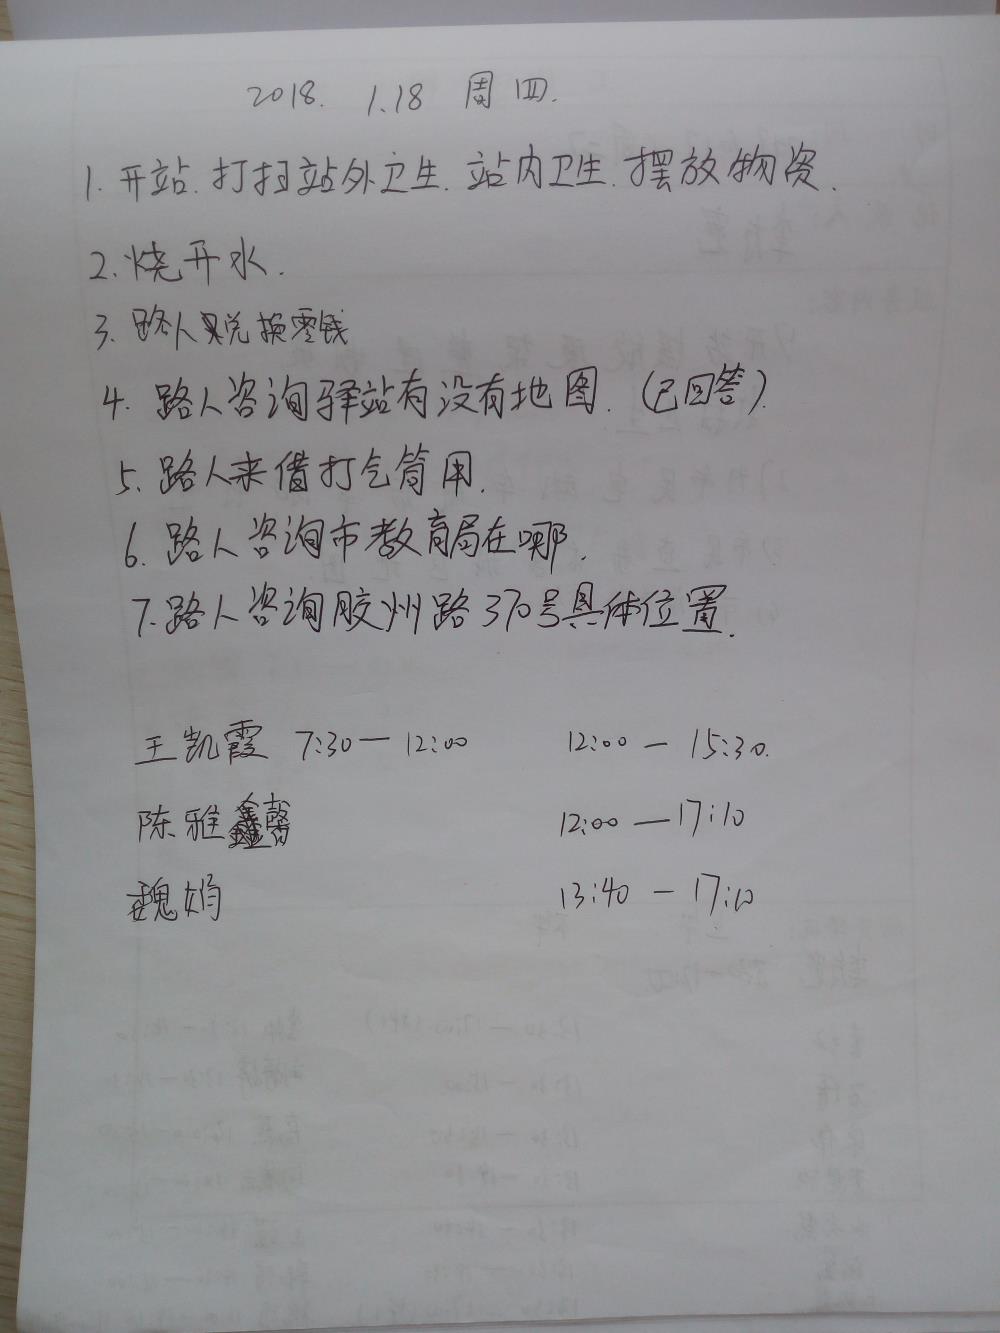 2018. 1.18 周四.
1. 开站. 打扫站外卫生. 站内卫生. 摆放物资.
2. 烧开水.
3. 路人兑换零钱
4. 路人咨询驿站有没有地图. (已回答).
5. 路人来借打气筒用.
6. 路人咨询市教育局在哪.
7. 路人咨询胶州路370号具体位置.
王凯霞 7:30—12:00 12:00—15:30.
陈雅馨 12:00—17:10
魏娟 13:40—17:10